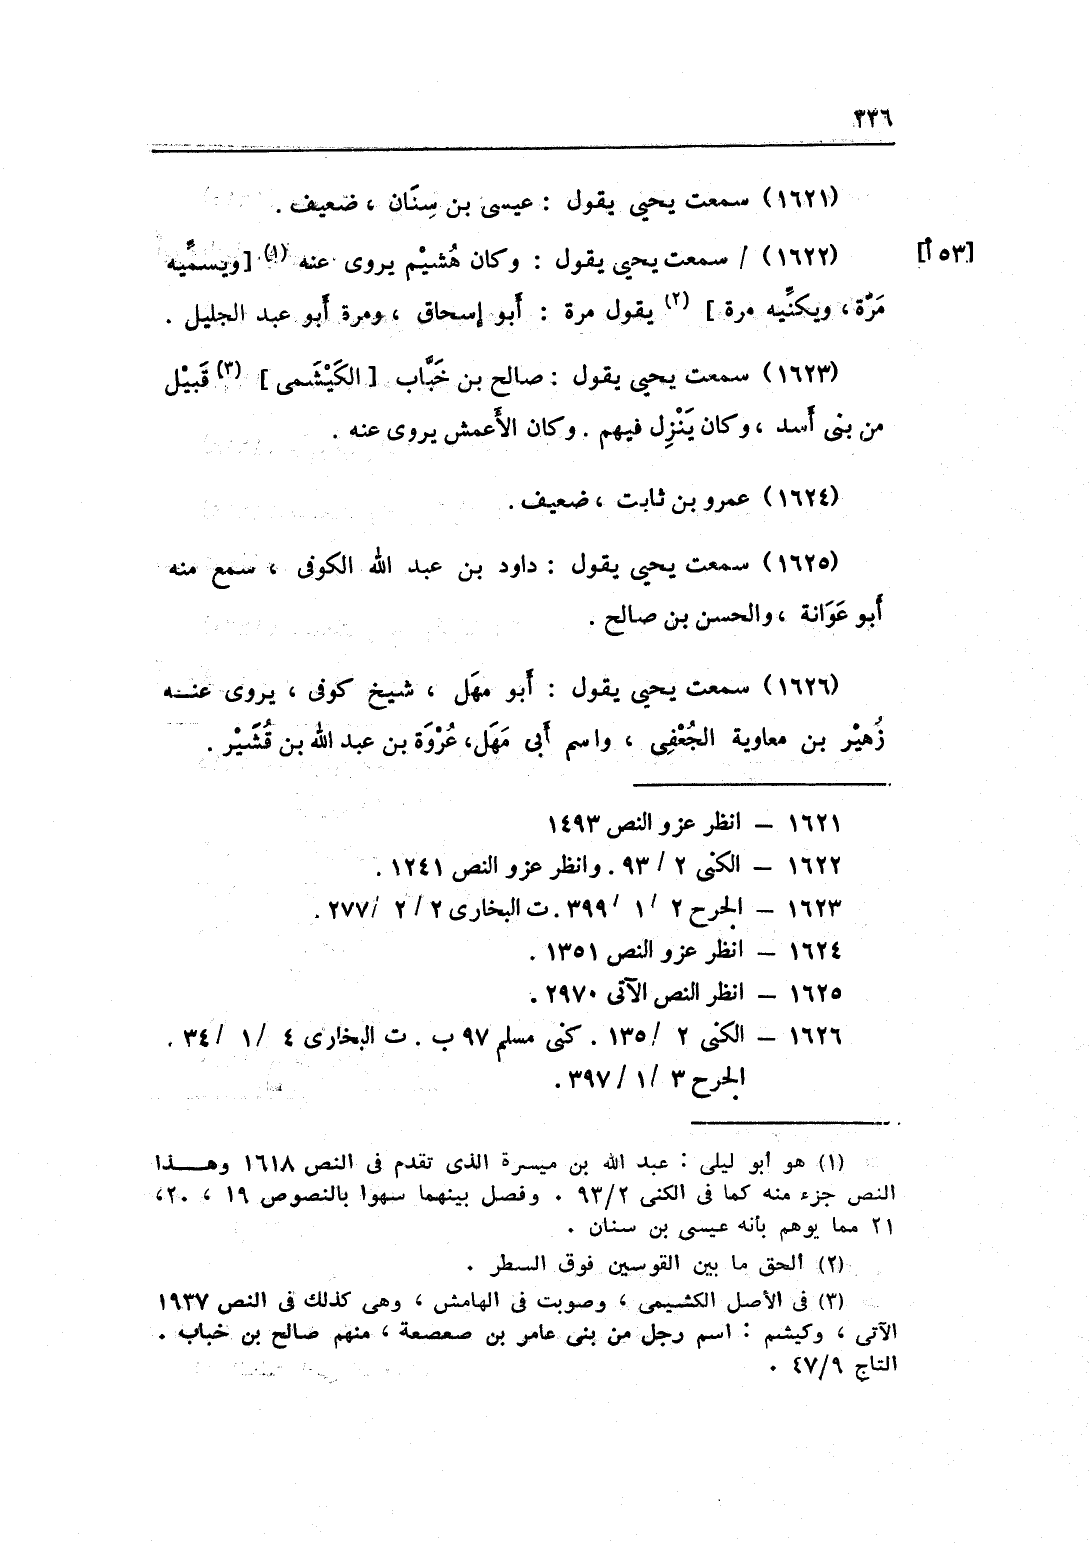 ٣٣٦
(١٦٢١) سمعت يحيي يقول : عيسى بن سِنَان ، ضعيف .
[٥٣ أ] (١٦٢٢) / سمعت يحيي يقول : وكان هُشيْم يروى عنه (١) [ويسمِّيه
مَرّة، ويكنِّيه مرة ] (٢) يقول مرة : أَبو إسحاق ، ومرة أَبو عبد الجليل .
(١٦٢٣) سمعت يحيي يقول : صالح بن خَبَّاب [ الكَيْشَمى ] (٣) قَبيْل
من بنى أَسد ، وكان يَنْزِل فيهم . وكان الأَعمش يروى عنه .
(١٦٢٤) عمرو بن ثابت ، ضعيف .
(١٦٢٥) سمعت يحيي يقول : داود بن عبد الله الكوفى ، سمع منه
أَبو عَوَانة ، والحسن بن صالح .
(١٦٢٦) سمعت يحيي يقول : أَبو مهَل ، شيخ كوفى ، يروى عنــه
زُهيْر بن معاوية الجُعْفِى ، واسم أَبى مَهَل، عُرْوَة بن عبد الله بن قُشَيْر .
١٦٢١ – انظر عزو النص ١٤٩٣
١٦٢٢ – الكنى ٢ / ٩٣ . وانظر عزو النص ١٢٤١ .
١٦٢٣ – الجرح ٢ / ١ / ٣٩٩ . ت البخارى ٢ / ٢ / ٢٧٧ .
١٦٢٤ – انظر عزو النص ١٣٥١ .
١٦٢٥ – انظر النص الآتى ٢٩٧٠ .
١٦٢٦ – الكنى ٢ / ١٣٥ . كنى مسلم ٩٧ ب . ت البخارى ٤ / ١ / ٣٤ .
الجرح ٣ / ١ / ٣٩٧ .
(١) هو أبو ليلى : عبد الله بن ميسرة الذى تقدم فى النص ١٦١٨ وهــذا
النص جزء منه كما فى الكنى ٩٣/٢ . وفصل بينهما سهوا بالنصوص ١٩ ، ٢٠،
٢١ مما يوهم بأنه عيسى بن سنان .
(٢) ألحق ما بين القوسين فوق السطر .
(٣) فى الأصل الكشيمى ، وصوبت فى الهامش ، وهى كذلك فى النص ١٩٣٧
الآتى ، وكيشم : اسم رجل من بنى عامر بن صعصعة ، منهم صالح بن خباب .
التاج ٤٧/٩ .